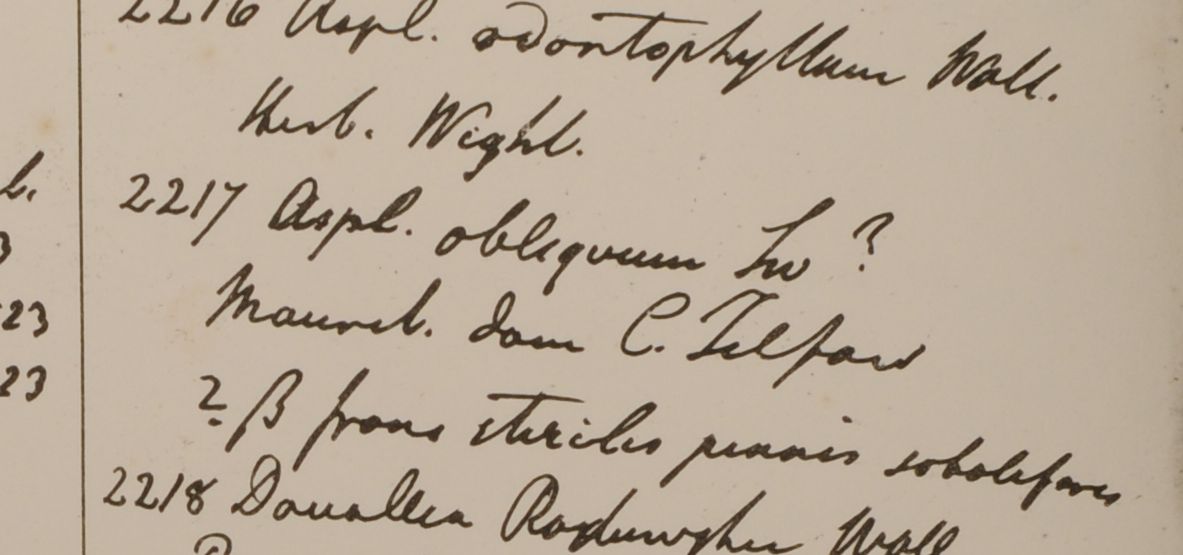 l.
3
23
23
2216 Aspl. odontophyllum Wall.
Herb. Wight.
2217 Aspl. obliquum Sw ?
Maurit. dom C. Telfair
2 β frons sterilis pinnis soboliferis
2218 Davallia Wall